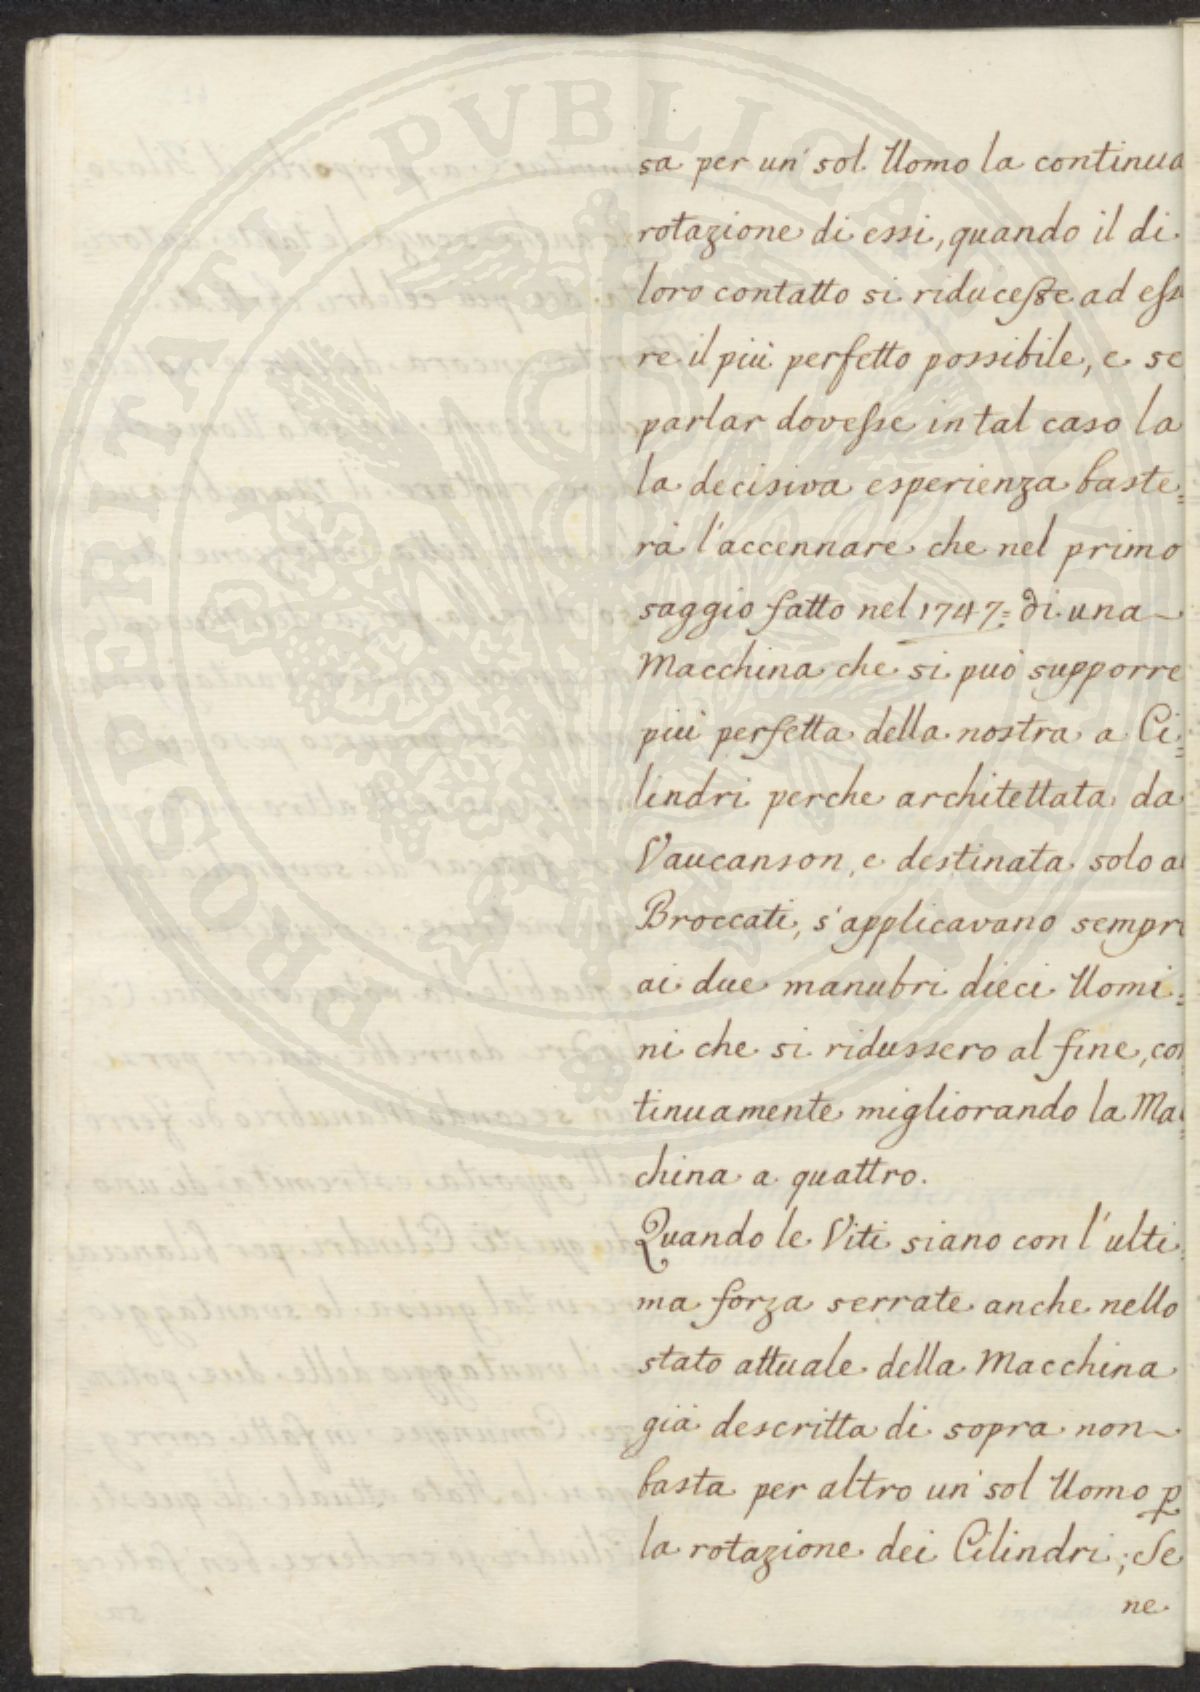 PROSPERITATI PVBLICAE
sa per un' sol. Uomo la continua
rotazione di essi, quando il di
loro contatto si riducesse ad esse
re il più perfetto possibile, e se
parlar dovesse in tal caso la
la decisiva esperienza baste=
rà l'accennare che nel primo
saggio fatto nel 1747= di una
Macchina che si può supporre
più perfetta della nostra a Ci=
lindri perche architettata da
Vaucanson, e destinata solo a
Broccati, s'applicavano sempre
ai due manubri dieci Uomi=
ni che si ridussero al fine, con
tinuamente migliorando la Mac=
china a quattro.
Quando le Viti siano con l'ulti=
ma forza serrate anche nello
stato attuale della Macchina
già descritta di sopra non
basta per altro un' sol Uomo p
la rotazione dei Cilindri; Se
ne